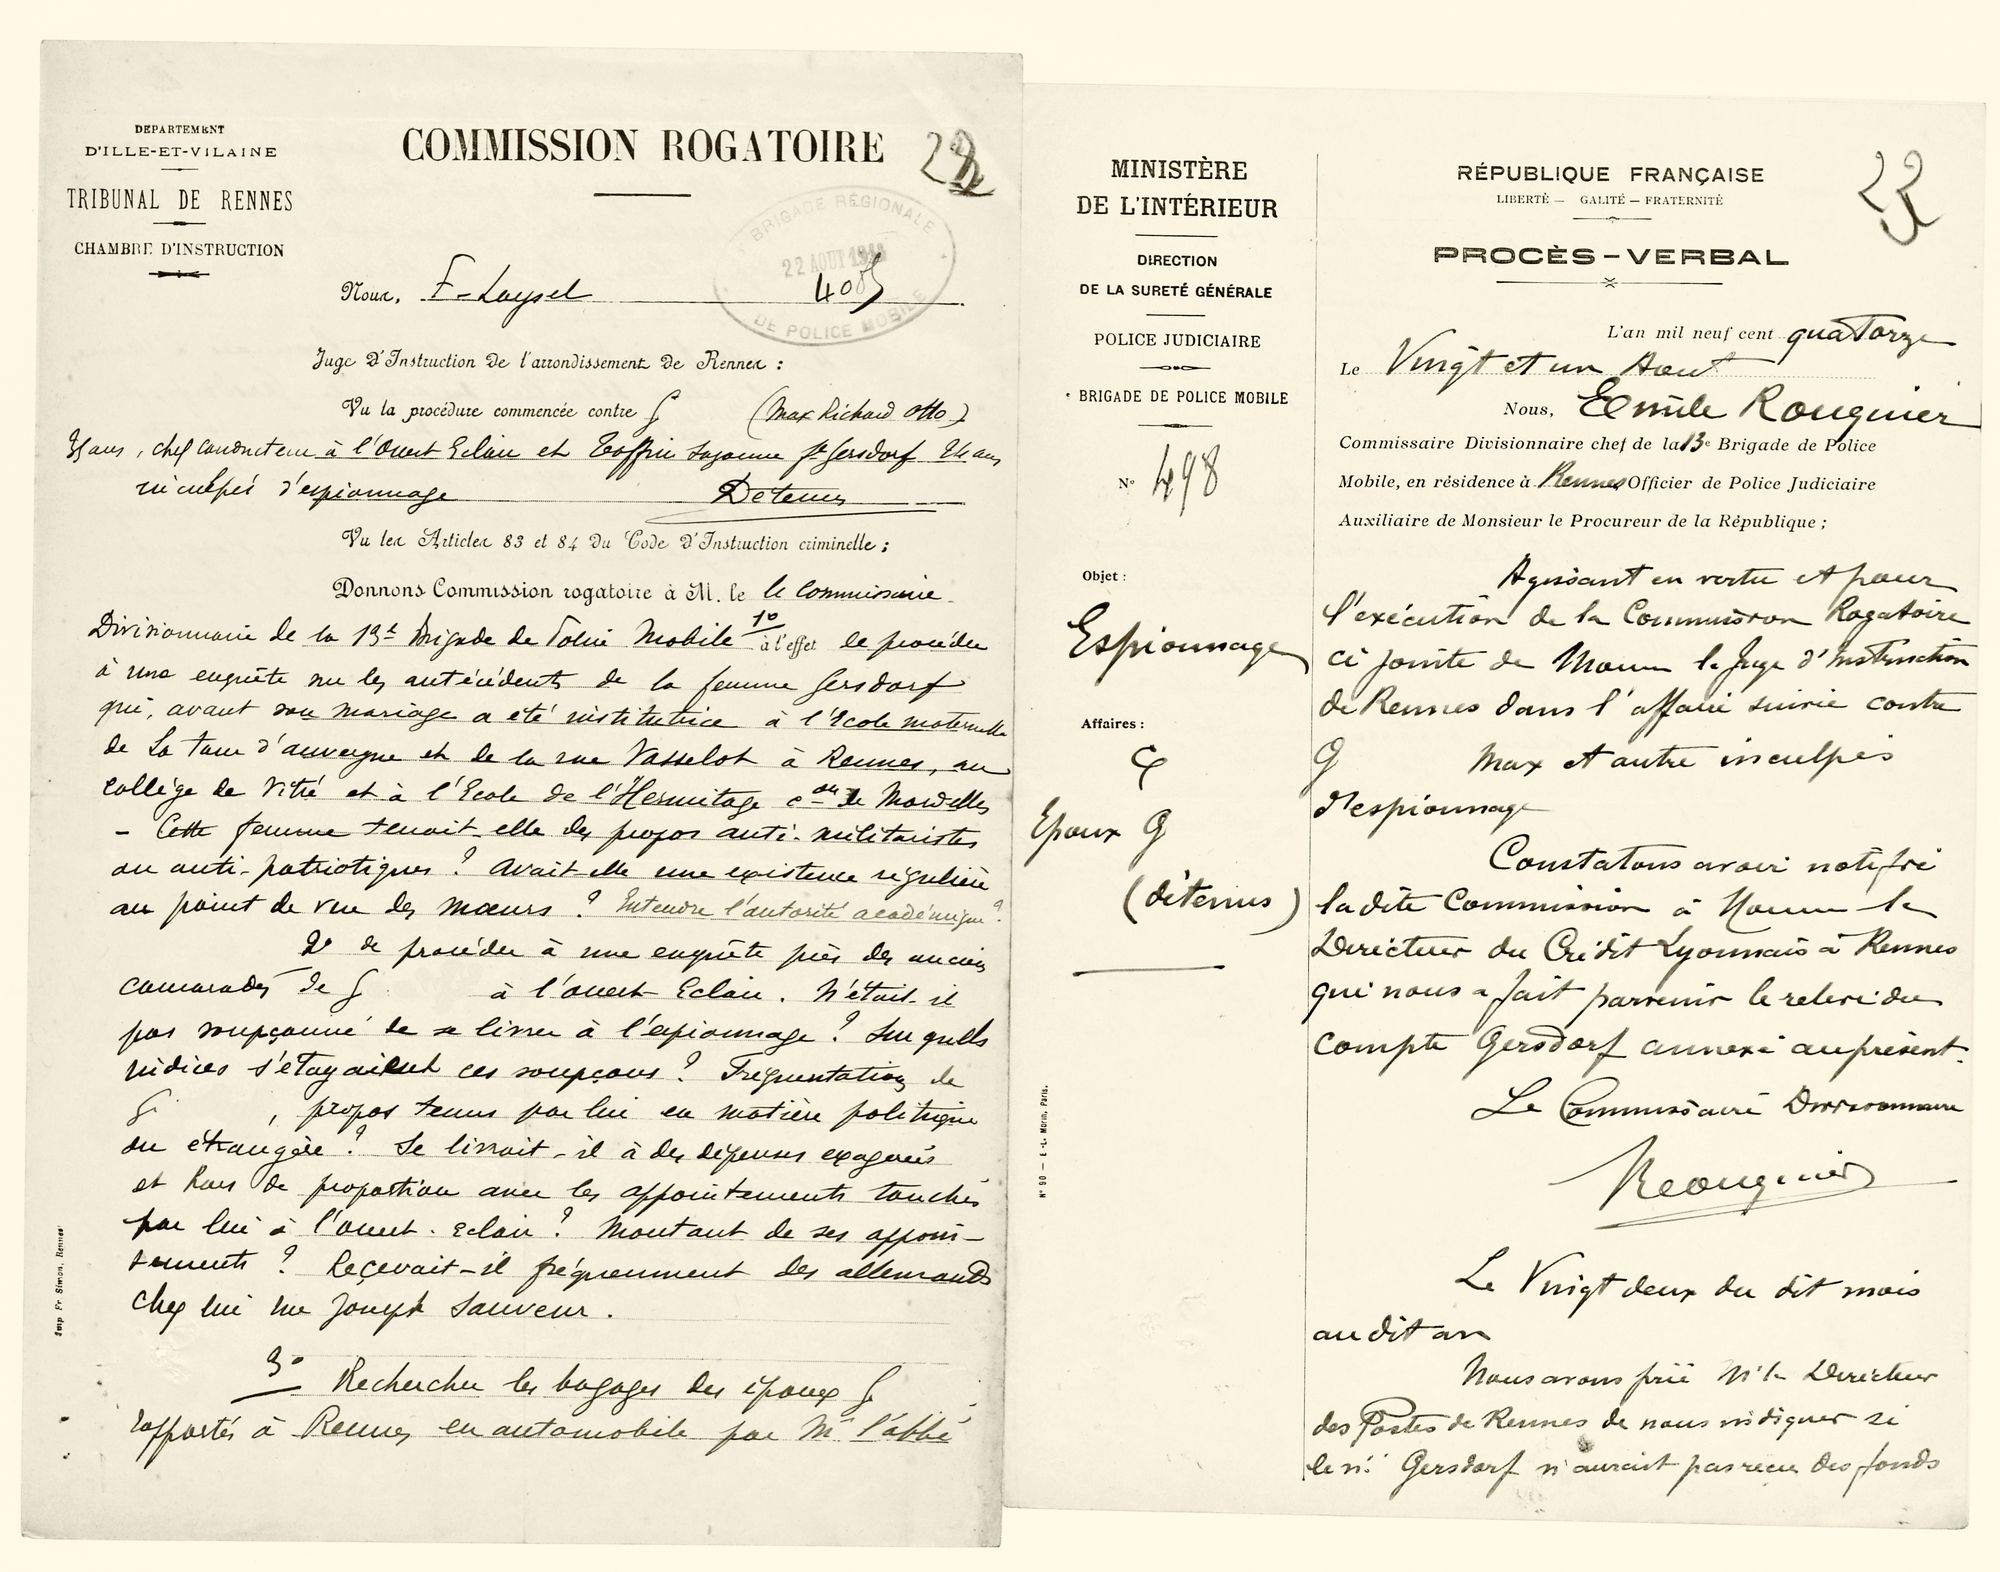 DEPARTEMENT
D'ILLE-ET-VILAINE
TRIBUNAL DE RENNES
CHAMBRE D'INSTRUCTION
COMMISSION ROGATOIRE
BRIGADE RÉGIONALE
22 AOUT
DE POLICE MOBILE
Nous, F. Loysel
Juge d'Instruction de l'arrondissement de Rennes :
Vu la procédure commencée contre G (Max Richard Otto)
ans, chef conducteur à l'Ouest Eclair et Toffin Suzanne fe Gersdorf 24 ans
inculpés d'espionnage Détenus
Vu les Articles 83 et 84 du Code d'Instruction criminelle ;
Donnons Commission rogatoire à M. le le Commissaire
Divisionnaire de la 13e Brigade de Police Mobile 1° à l'effet de procéder
à une enquête sur les antécédents de la femme Gersdorf
qui, avant son mariage a été institutrice à l'Ecole maternelle
de La Tour d'auvergne et de la rue Vasselot à Rennes, au
collège de Vitré et à l'Ecole de l'Hermitage con de Mordelles
- Cette femme tenait-elle des propos anti-militaristes
ou anti-patriotiques ? Avait-elle une existence régulière
au point de vue des mœurs ? Entendre l'autorité académique ?
2° de procéder à une enquête près des anciens
camarades de G à l'ouest Eclair. N'était-il
pas soupçonné de se livrer à l'espionnage ? Sur quels
indices s'étayaient ces soupçons ? Fréquentations de
G , propos tenus par lui en matière politique
ou étrangère ? Se livrait-il à des dépenses exagérées
et hors de proportion avec les appointements touchés
par lui à l'ouest-Eclair ? Montant de ses appoin-
tements ? Recevait-il fréquemment des allemands
chez lui rue Joseph Sauveur.
3° Rechercher les bagages des époux G
rapportés à Rennes en automobile par Mr l'abbé
Imp Fr Simon, Rennes
MINISTÈRE
DE L'INTÉRIEUR
DIRECTION
DE LA SURETÉ GÉNÉRALE
POLICE JUDICIAIRE
BRIGADE DE POLICE MOBILE
N° 498
Objet :
Espionnage
Affaires :
G
Epoux G
(détenus)
N° 90 — E.-L. Morin, Paris.
RÉPUBLIQUE FRANÇAISE
LIBERTÉ — GALITÉ — FRATERNITÉ
PROCÈS-VERBAL
L'an mil neuf cent quatorze
Le Vingt et un Aout
Nous, Emile Rouquier
Commissaire Divisionnaire chef de la 13e Brigade de Police
Mobile, en résidence à Rennes Officier de Police Judiciaire
Auxiliaire de Monsieur le Procureur de la République ;
Agissant en vertu et pour
l'exécution de la Commission Rogatoire
ci jointe de Monsieur le Juge d'Instruction
de Rennes dans l'affaire suivie contre
G Max et autre inculpés
d'espionnage
Constatons avoir notifié
la dite Commission à Monsieur le
Directeur du Crédit Lyonnais à Rennes
qui nous a fait parvenir le relevé du
compte Gersdorf annexé au présent.
Le Commissaire Divisionnaire
Rouquier
Le Vingt deux du dit mois
au dit an
Nous avons prié Mr le Directeur
des Postes de Rennes de nous indiquer si
le n. Gersdorf n'aurait pas reçu des fonds